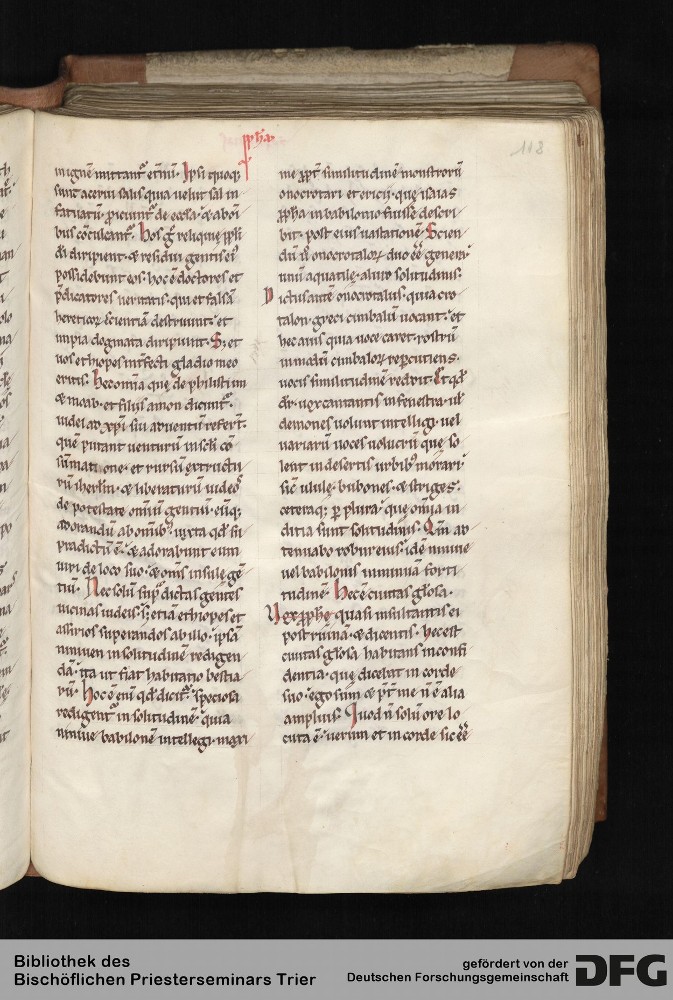 ꝓph̄a
118
in ignē mittant᷑ et̄ni. Ipsi quoq;
sunt acerui salis quia uelut sal in
fatuatū proiciunt᷑ de eccl̄a. & ab om̄i
bus cōculcant᷑. Hos g̊ reliquię ppl̄i
dī diripient. & residui gentis ei᷒
possidebunt eos. hoc ē doctores et
p̄dicatores ueritatis. qui et falsā
hereticoꝝ scientiā destruunt. et
impia dogmata diripiunt. S; et
uos ethiopes int̄fecti gladio meo
eritis. Hec om̄ia que de philistiim
& moab. et filiis amon dicunt᷑.
iudei ad xp̄i sui aduentū refert᷑.
quē putant uenturū in sc̄li cō
sūmati one. et rursū extructu
rū ihrl̄m. & liberaturū iudeos
de potestate omniū gentium. eūq;
adorandū ab omīb; iuxta qd̄ hi
pradictū ē. & adorabunt eum
uiri de loco suo. & om̄s insulę gē
tiū. Nec solū sup̄ dictas gentes
uicinas iudeis. s; etiā ethiopes et
assirios superandos ab illo. ipsā
niniuen in solitudinē redigen
dā. ita ut fiat habitatio bestia
rū. Hoc ē eni qd̄ dicit᷑. speciosa
redigent᷑ in solitudinē. quia
niniue babilonē intellegi. maxi
me ꝓpt̄ similitudinē monstrorū
onocrotari et ericii. quę isaias
ꝓph̄a in babilonio fuisse descri
bit. post eius uastationē. Scien
dū ū onocrotaloꝝ duo ēē genera.
unū aquatile. aliud solitudinis.
Dictus autē onocrotalus. quia cro
talon. greci cimbalū uocant. et
hec auis quia uoce caret. rostrū
in modū cimbaloꝝ repercutiens.
uocis similitudinē reddit. Et qd̄
dr̄. uox cantantis in fenestra. ul̄
demones uolunt intelligi. uel
uariarū uoces uolucrū que so
lent in desertis urbib; morari.
sic̄ ulule. bubones. & striges.
ceteraq; ꝑ plura. que om̄ia in
ditia sunt solitudinis. Qm̄ ad
tenuabo robur eius. idē niniue
uel babilonis in nimiā forti
tudinē. Hec ē ciuitas gl̄osa.
Vox ꝓph̄e quasi insultantis ei
post ruinā. & dicentis. hec est
ciuitas gl̄osa habitans in confi
dentia. que dicebat in corde
suo. ego sum & p̄t̄ me n̄ ē alia
amplius. Quod n̄ solū ore lo
cuta ē. uerum et in corde sic ēē
Bibliothek des
Bischöflichen Priesterseminars Trier
gefördert von der
Deutschen Forschungsgemeinschaft
DFG